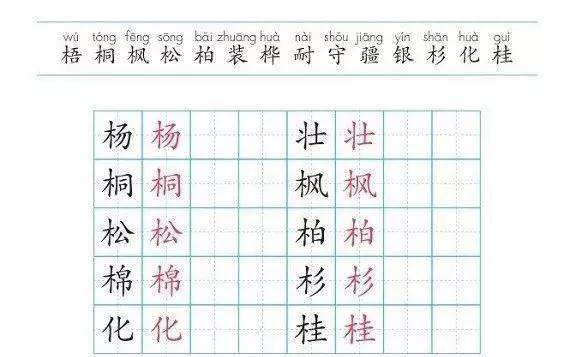 wú tóng fēng sōng bǎi zhuāng huà nài shǒu jiāng yín shān huà guì
梧 桐 枫 松 柏 装 桦 耐 守 疆 银 杉 化 桂
杨 杨 壮 壮
桐 桐 枫 枫
松 松 柏 柏
棉 棉 杉 杉
化 化 桂 桂